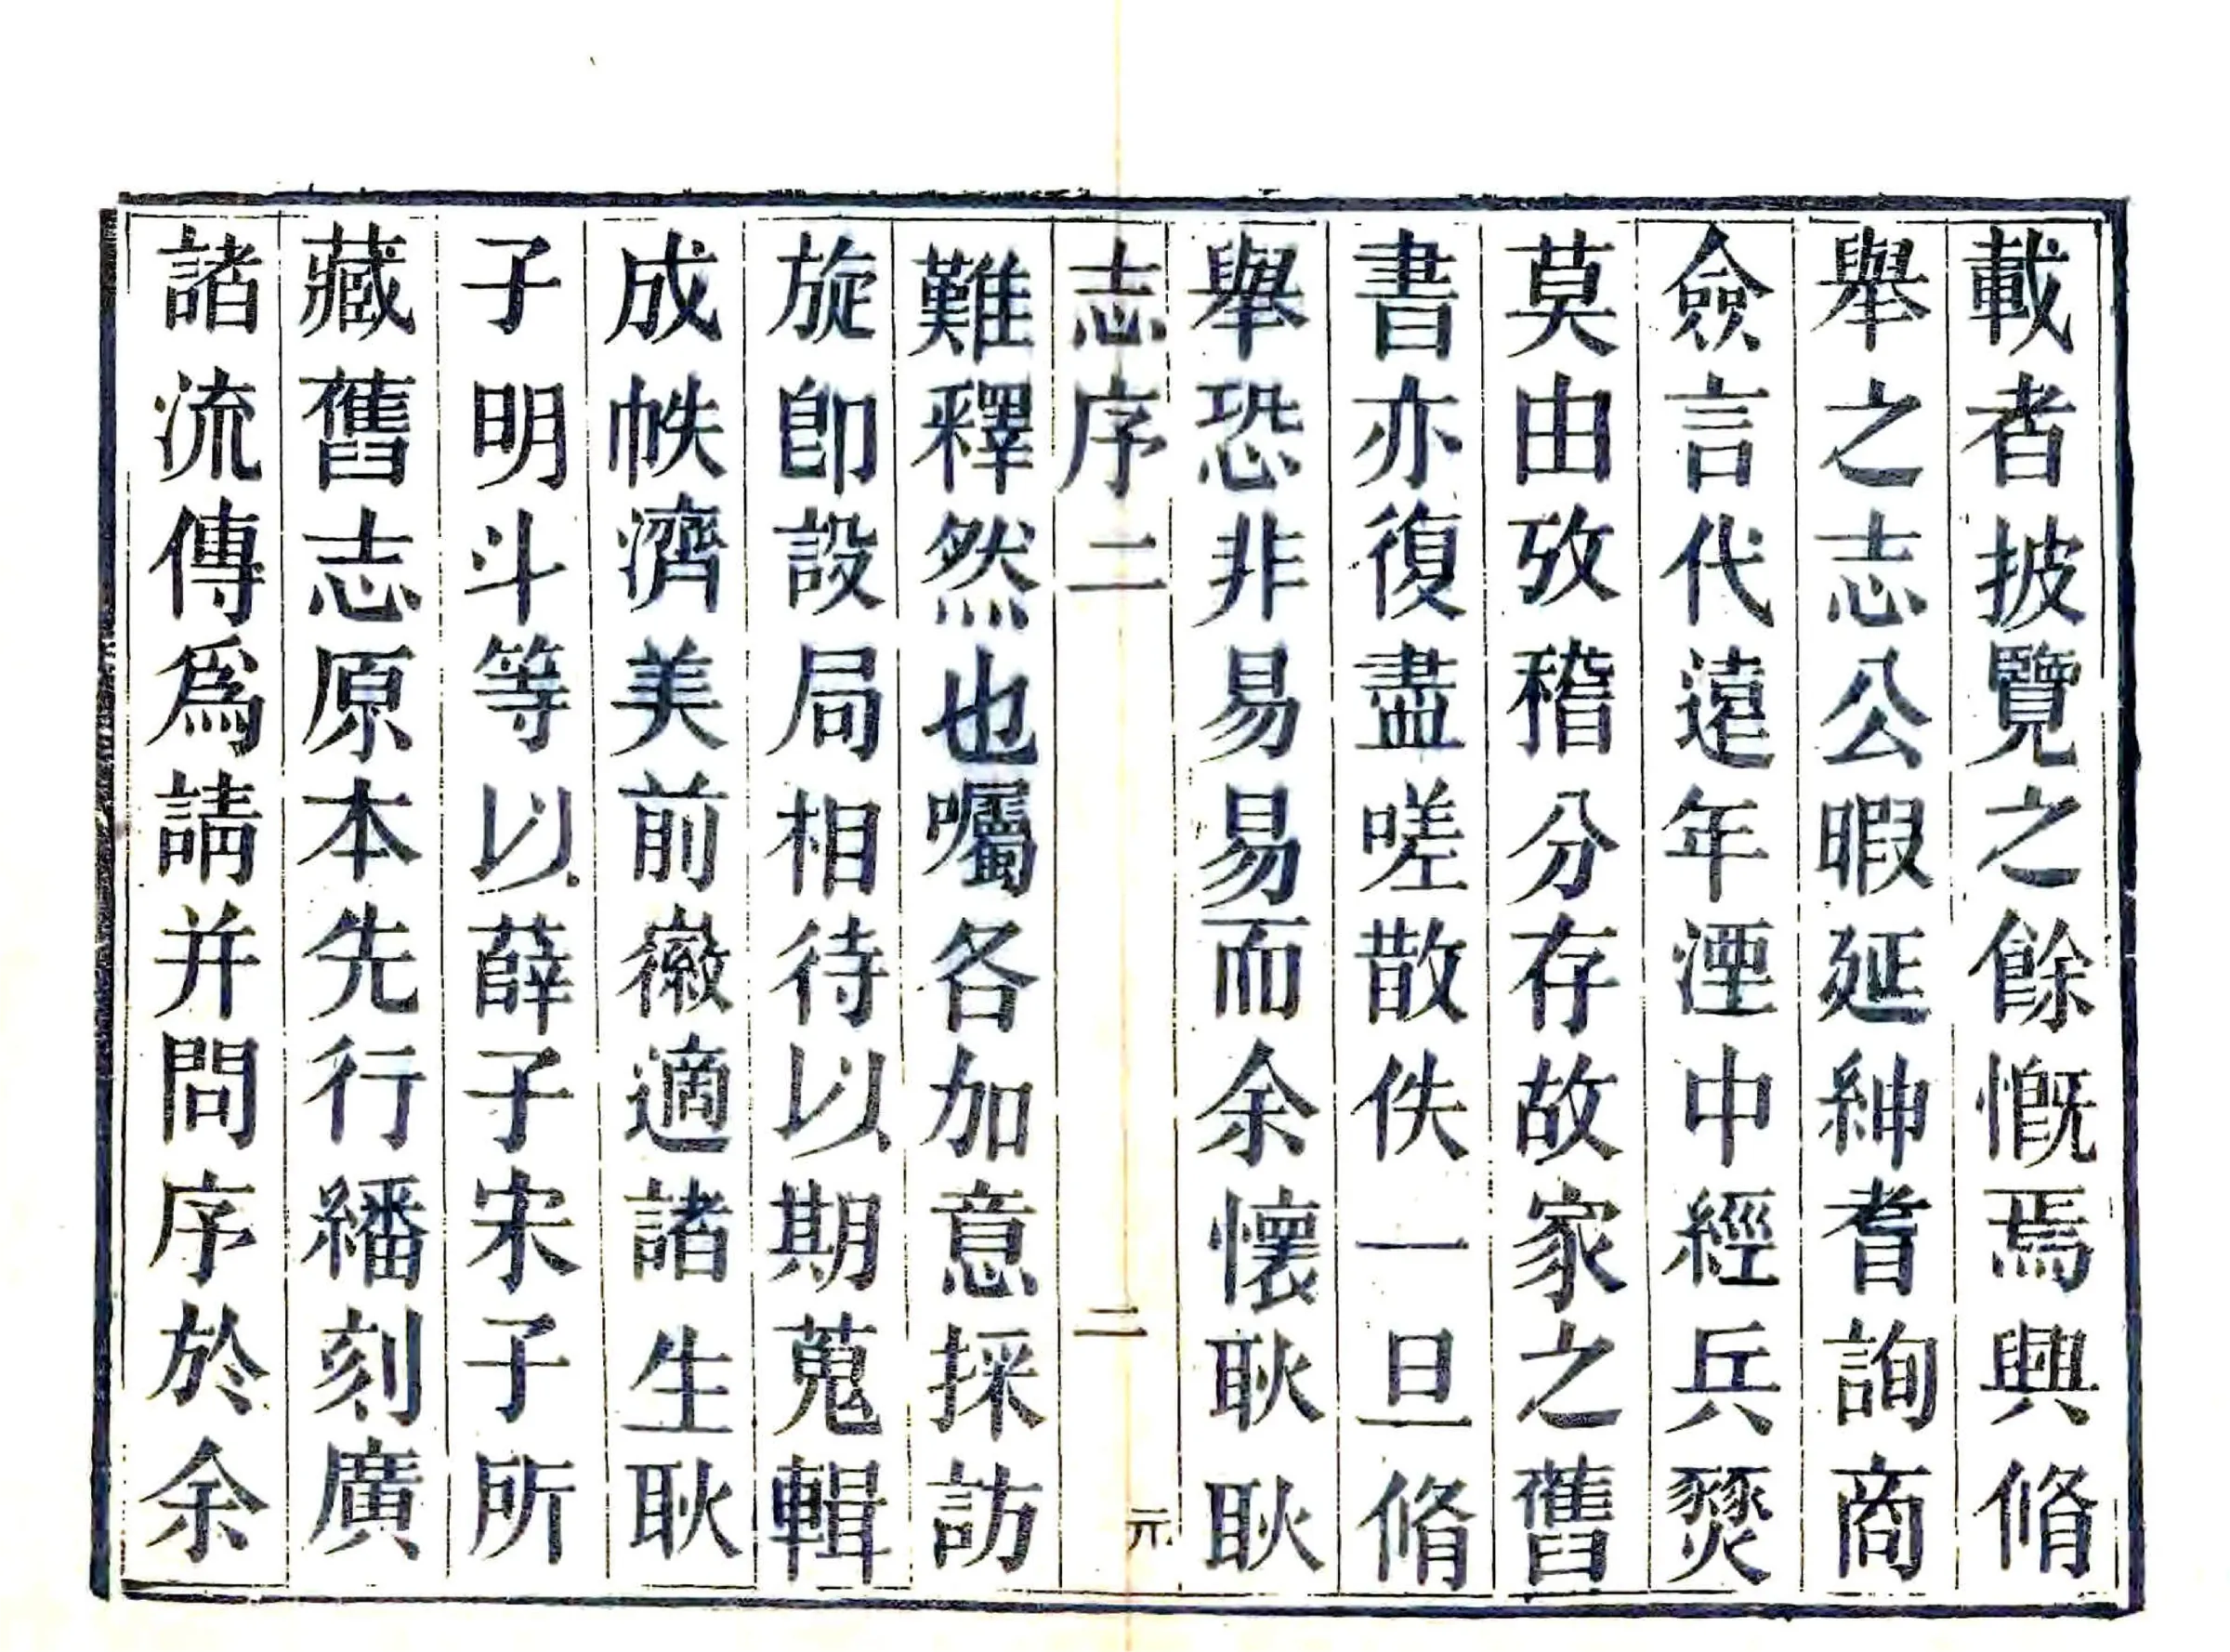 載者披覽之餘慨焉興脩
舉之志公暇延紳耆詢商
僉言代遠年湮中經兵燹
莫由攷稽分存故家之舊
書亦復盡嗟散佚一旦脩
舉恐非易易而余懷耿耿
志序二 二 元
難釋然也囑各加意採訪
旋卽設局相待以期蒐輯
成帙濟美前徽適諸生耿
子明斗等以薛子宋子所
藏舊志原本先行繙刻廣
諸流傳爲請并問序於余